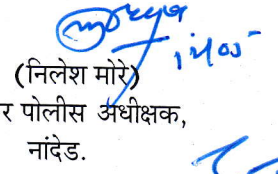 (निलेश मोरे)
र पोलीस अधीक्षक,
नांदेड.